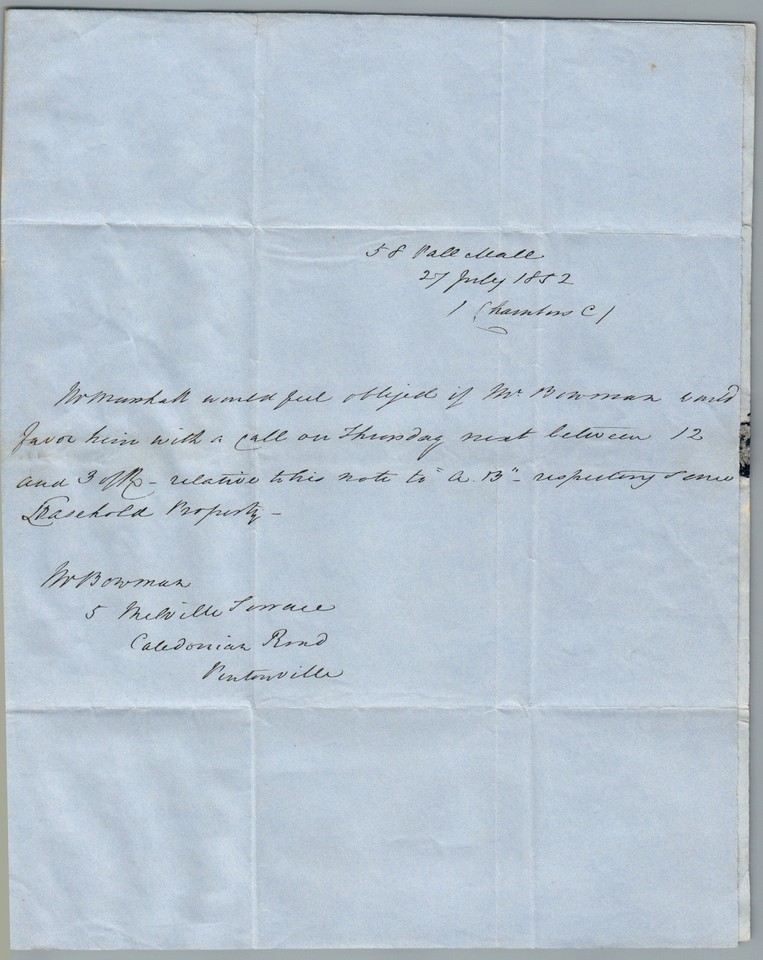 58 Pall Mall
27 July 1852
(Chambers C)
Mr Marshall would feel obliged if Mr Bowman could
favor him with a call on Thursday next between 12
and 3 - relative to his note to "A.B" - respecting some
Leasehold Property -
Mr Bowman
5 Melville Terrace
Caledonian Road
Pentonville